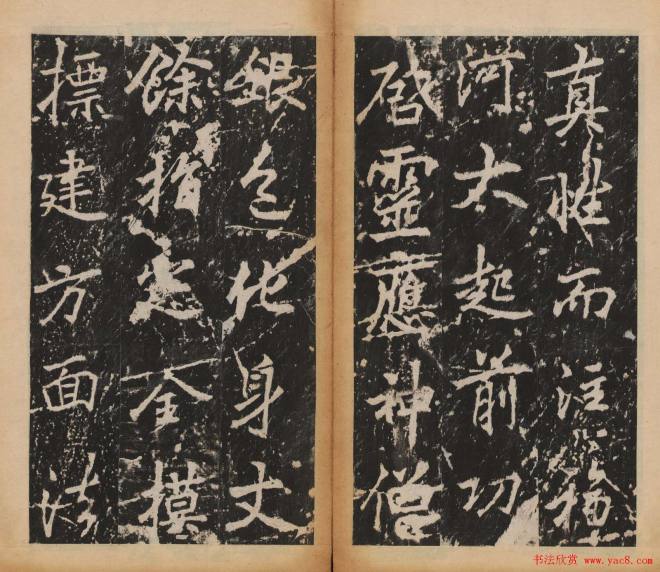 真性而注福
河大起前功
啟靈應神僧
銀色化身丈
餘指定全摸
摽建方面法
书法欣赏 www.yac8.com